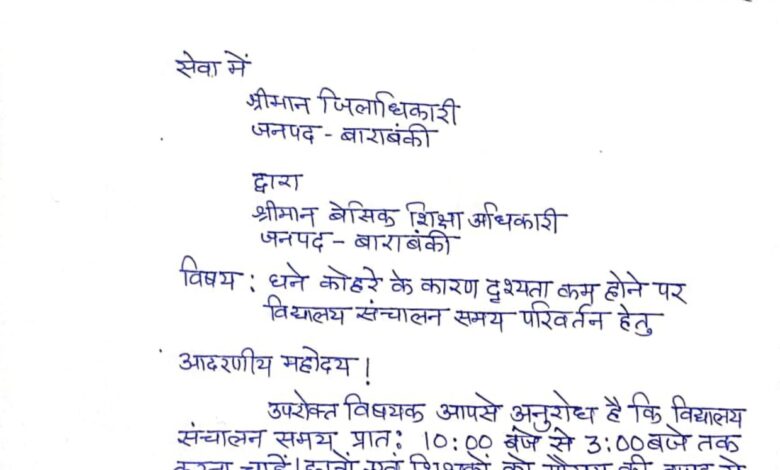 सेवा में
श्रीमान जिलाधिकारी
जनपद - बाराबंकी
द्वारा
श्रीमान बेसिक शिक्षा अधिकारी
जनपद - बाराबंकी
विषय : घने कोहरे के कारण दृश्यता कम होने पर
विद्यालय संचालन समय परिवर्तन हेतु
आदरणीय महोदय !
उपरोक्त विषयक आपसे अनुरोध है कि विद्यालय
संचालन समय प्रात: 10:00 बजे से 3:00 बजे तक